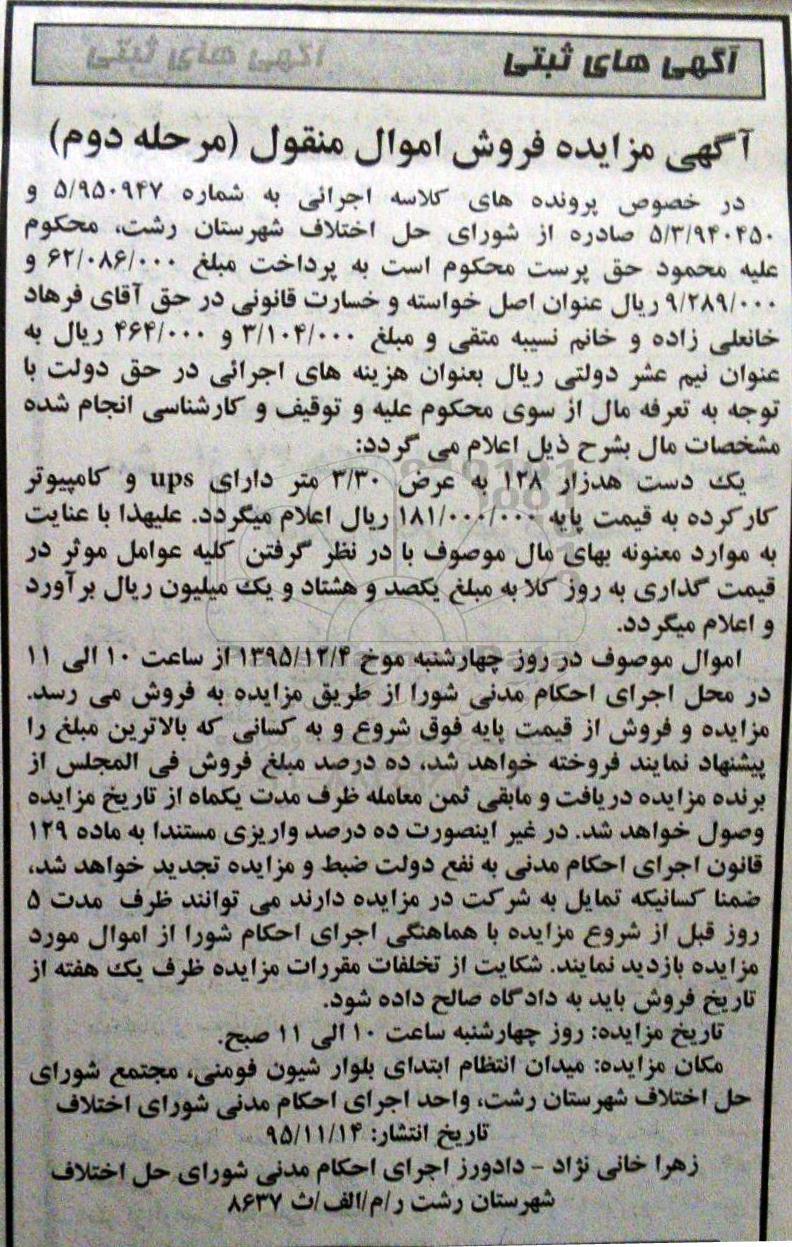 آگهی های ثبتی
آگهی مزایده فروش اموال منقول (مرحله دوم)
در خصوص پرونده های کلاسه اجرائی به شماره ۵/۹۵۰۹۴۷ و
۵/۳/۹۴۰۴۵۰ صادره از شورای حل اختلاف شهرستان رشت، محکوم
علیه محمود حق پرست محکوم است به پرداخت مبلغ ۶۲/۰۸۶/۰۰۰ و
۹/۲۸۹/۰۰۰ ریال عنوان اصل خواسته و خسارت قانونی در حق آقای فرهاد
خانعلی زاده و خانم نسیبه متقی و مبلغ ۳/۱۰۴/۰۰۰ و ۴۶۴/۰۰۰ ریال به
عنوان نیم عشر دولتی ریال بعنوان هزینه های اجرائی در حق دولت با
توجه به تعرفه مال از سوی محکوم علیه و توقیف و کارشناسی انجام شده
مشخصات مال بشرح ذیل اعلام می گردد:
یک دست هدزار ۱۲۸ به عرض ۳/۳۰ متر دارای ups و کامپیوتر
کارکرده به قیمت پایه ۱۸۱/۰۰۰/۰۰۰ ریال اعلام میگردد. علیهذا با عنایت
به موارد معنونه بهای مال موصوف با در نظر گرفتن کلیه عوامل موثر در
قیمت گذاری به روز کلا به مبلغ یکصد و هشتاد و یک میلیون ریال برآورد
و اعلام میگردد.
اموال موصوف در روز چهارشنبه موخ ۱۳۹۵/۱۲/۴ از ساعت ۱۰ الی ۱۱
در محل اجرای احکام مدنی شورا از طریق مزایده به فروش می رسد.
مزایده و فروش از قیمت پایه فوق شروع و به کسانی که بالاترین مبلغ را
پیشنهاد نمایند فروخته خواهد شد، ده درصد مبلغ فروش فی المجلس از
برنده مزایده دریافت و مابقی ثمن معامله ظرف مدت یکماه از تاریخ مزایده
وصول خواهد شد. در غیر اینصورت ده درصد واریزی مستندا به ماده ۱۲۹
قانون اجرای احکام مدنی به نفع دولت ضبط و مزایده تجدید خواهد شد،
ضمنا کسانیکه تمایل به شرکت در مزایده دارند می توانند ظرف مدت ۵
روز قبل از شروع مزایده با هماهنگی اجرای احکام شورا از اموال مورد
مزایده بازدید نمایند. شکایت از تخلفات مقررات مزایده ظرف یک هفته از
تاریخ فروش باید به دادگاه صالح داده شود.
تاریخ مزایده: روز چهارشنبه ساعت ۱۰ الی ۱۱ صبح.
مکان مزایده: میدان انتظام ابتدای بلوار شیون فومنی، مجتمع شورای
حل اختلاف شهرستان رشت، واحد اجرای احکام مدنی شورای اختلاف
تاریخ انتشار: ۹۵/۱۱/۱۴
زهرا خانی نژاد - دادورز اجرای احکام مدنی شورای حل اختلاف
شهرستان رشت ر/م/الف/ث ۸۶۳۷